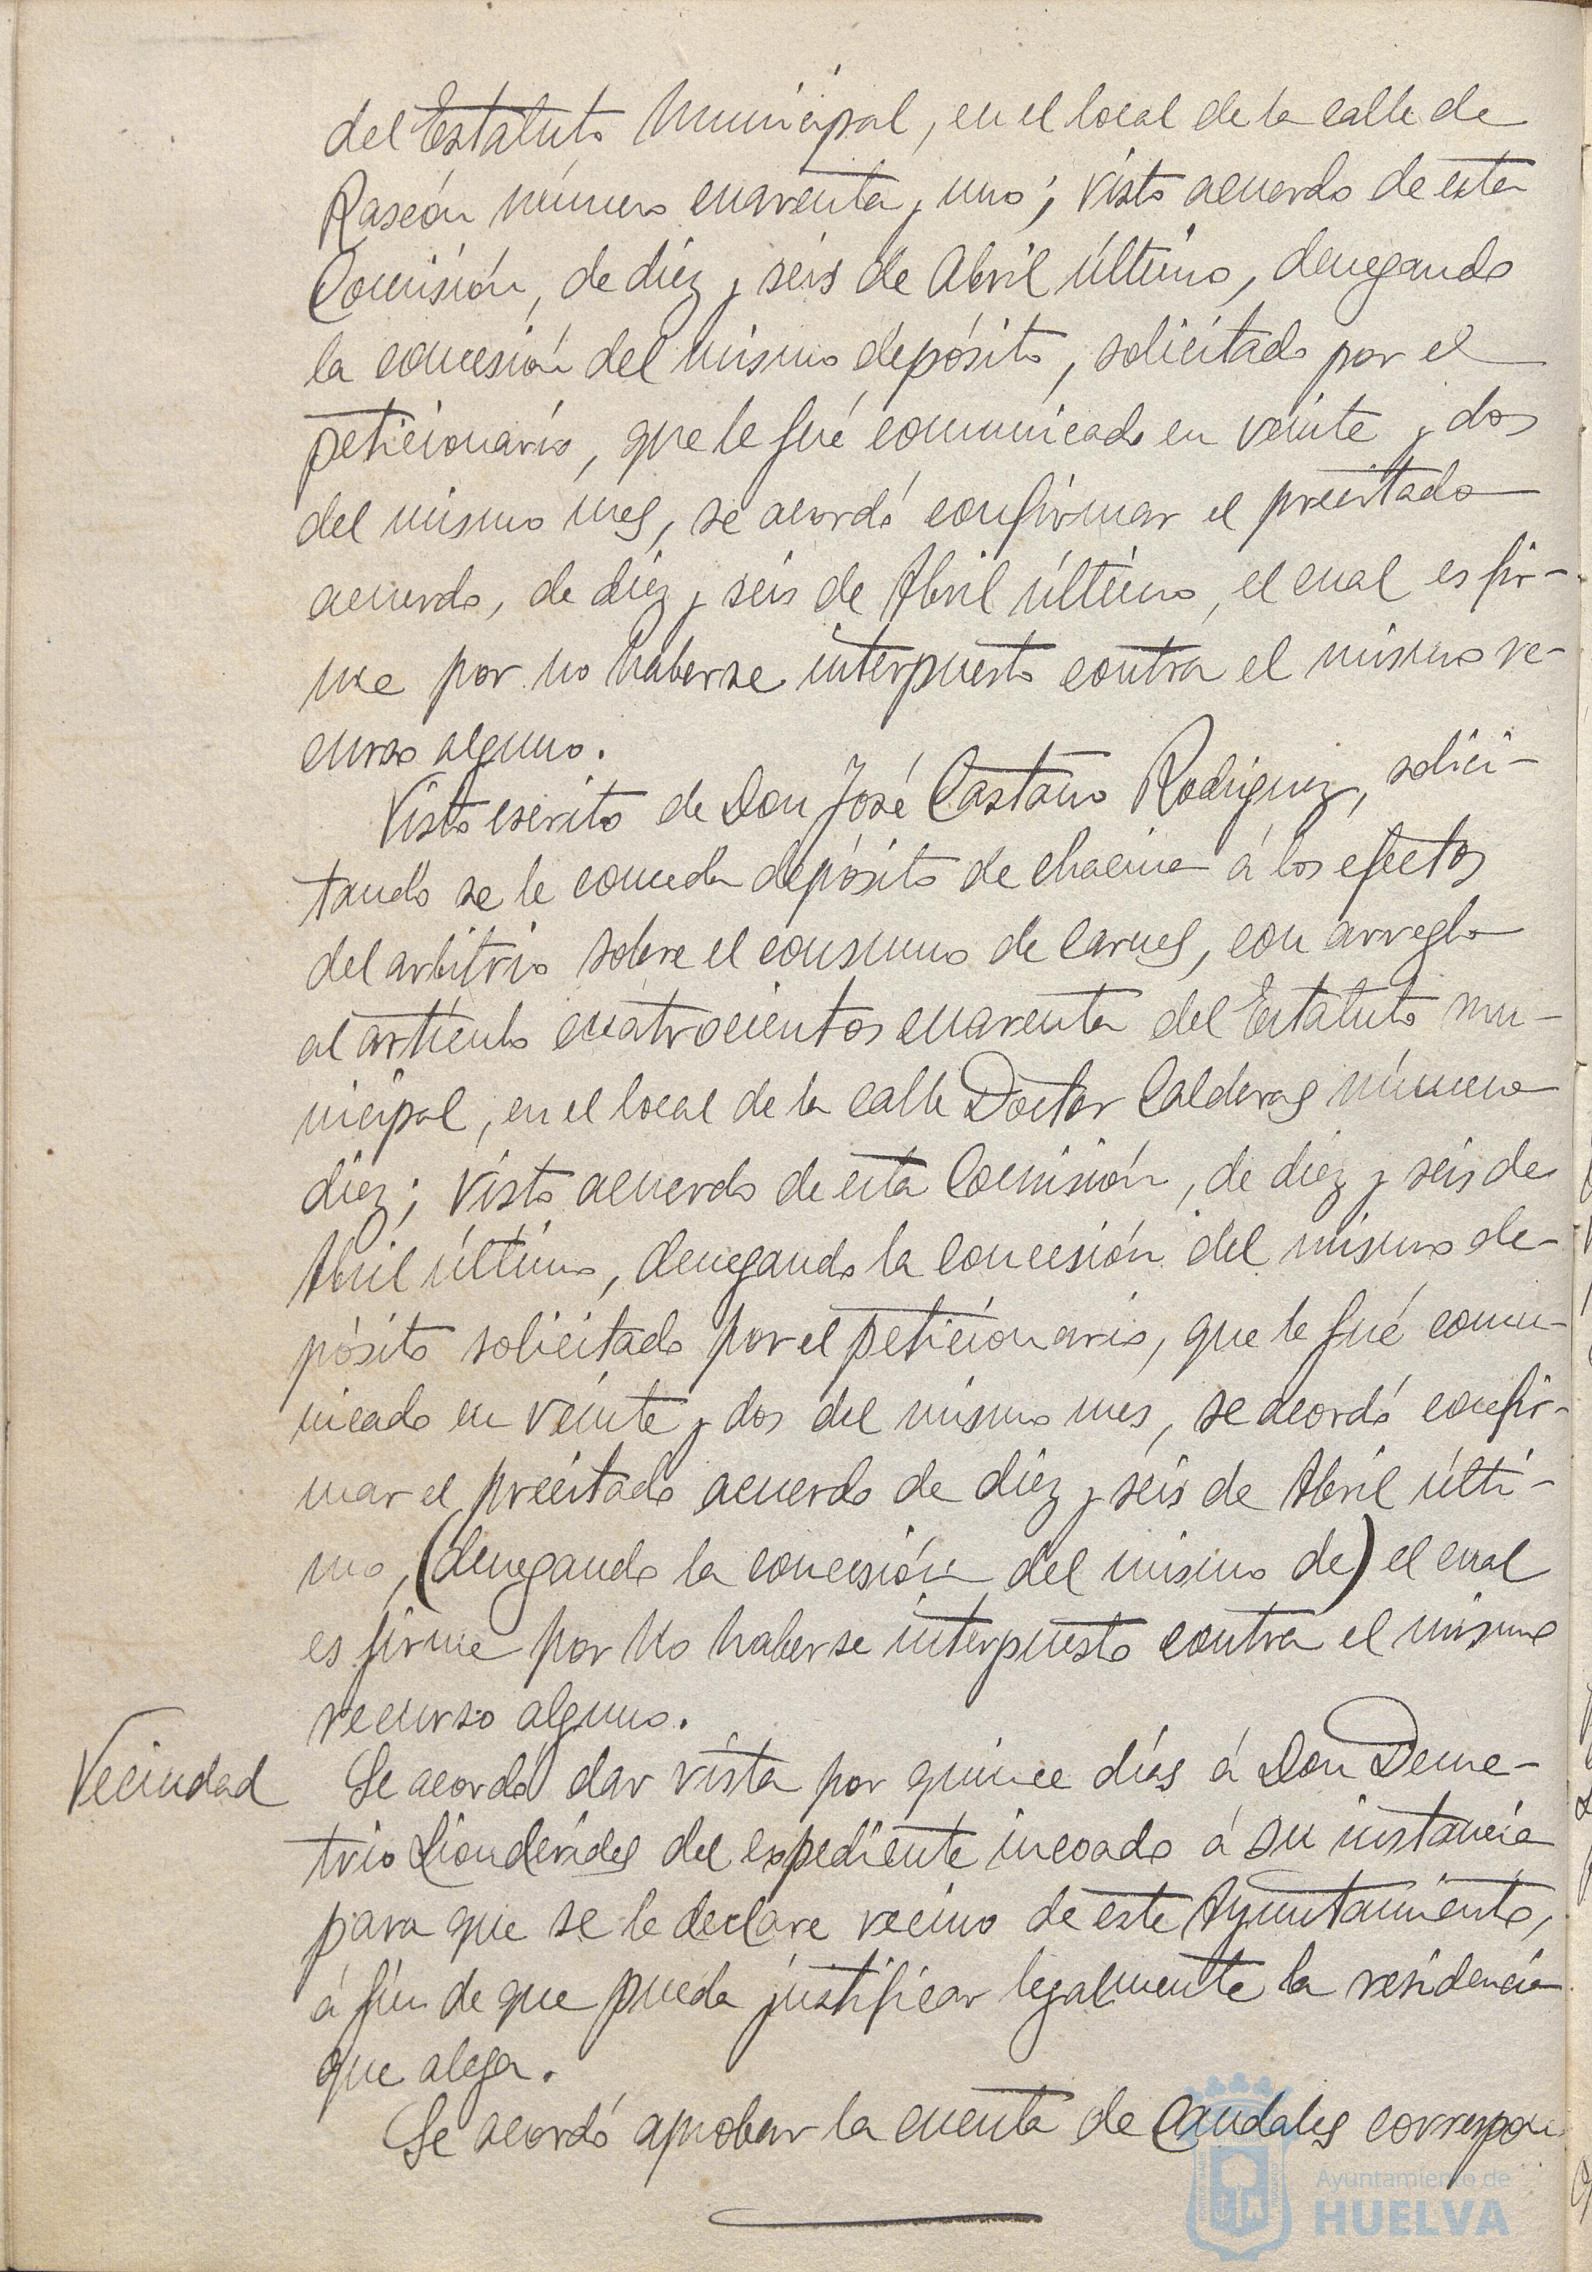 del Estatuto Municipal, en el local de la calle de
Rascón número cuarenta y uno; visto acuerdo de esta
Comisión, de diez y seis de Abril último, denegando
la concesión del mismo depósito, solicitado por el
peticionario, que le fué comunicado en veinte y dos
del mismo mes, se acordó confirmar el precitado
acuerdo, de diez y seis de Abril último, el cual es fir-
me por no haberse interpuesto contra el mismo re-
curso alguno.
Visto escrito de Don José Castaño Rodriguez, solici-
tando se le conceda depósito de chacina á los efectos
del arbitrio sobre el consumo de carnes, con arreglo
al artículo cuatrocientos cuarenta del Estatuto mu-
nicipal, en el local de la calle Doctor Calderas número
diez; visto acuerdo de esta Comisión, de diez y seis de
Abril último, denegando la concesión del mismo de-
pósito solicitado por el peticionario, que le fué comu-
nicado en veinte y dos del mismo mes, se acordó confir-
mar el precitado acuerdo de diez y seis de Abril últi-
mo, (denegando la concesión del mismo de) el cual
es firme por no haberse interpuesto contra el mismo
recurso alguno.
Vecindad
Se acordó dar vista por quince días á Don Deme-
trio Liondérides del expediente incoado á su instancia
para que se le declare vecino de este Ayuntamiento,
á fin de que pueda justificar legalmente la residencia
que alega.
Se acordó aprobar la cuenta de Caudales correspon
Ayuntamiento de
HUELVA